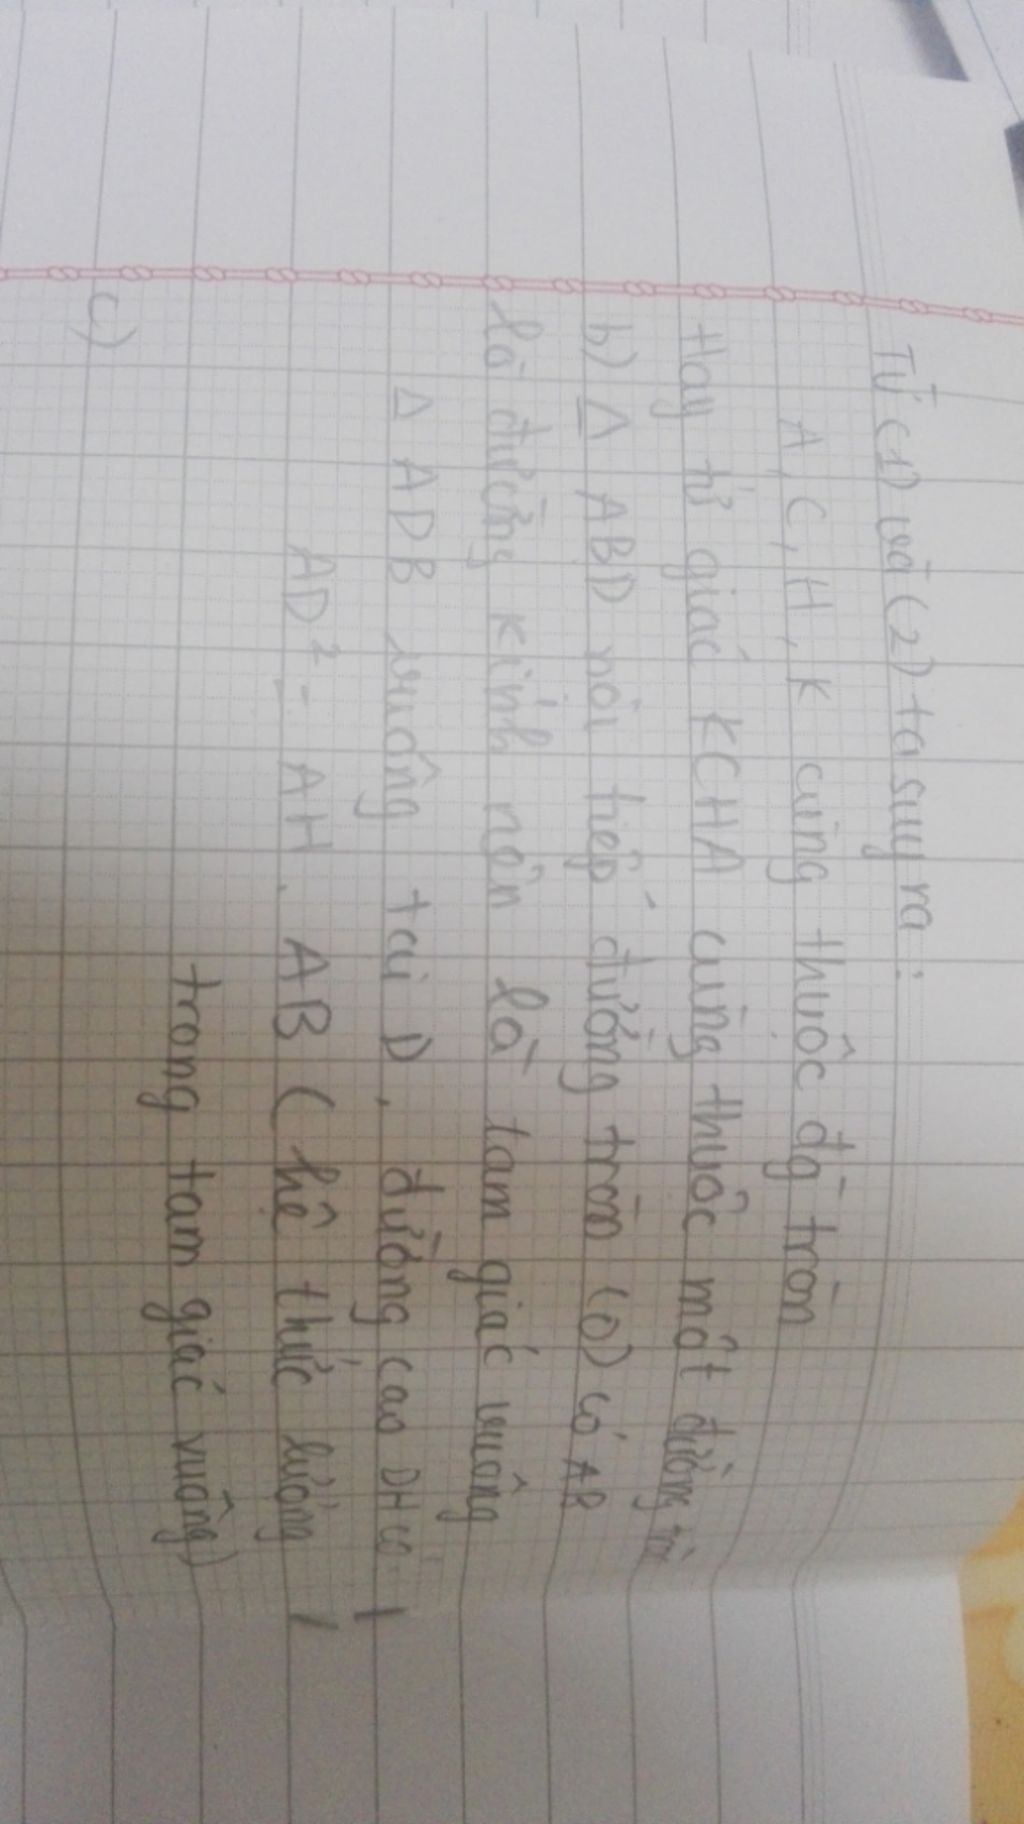 Từ (1) và (2) ta suy ra:
A, C, H, K cùng thuộc đg tròn
Hay tứ giác KCHA cùng thuộc một đường
b) Δ ABD nội tiếp đường tròn (O) có AB
là đường kính nên là tam giác vuông
Δ ADB vuông tại D, đường cao DH có
AD² = AH. AB (hệ thức lượng
trong tam giác vuông)
c)